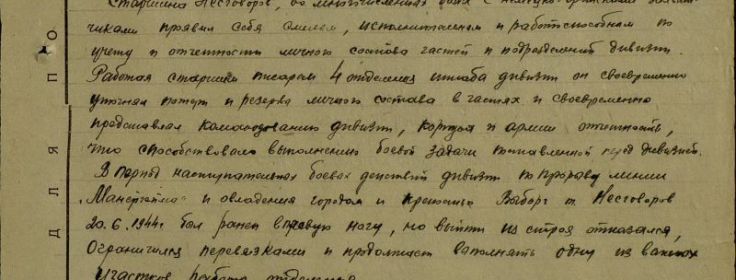 Старшина Несговоров, во многочисленных боях с немецко-финскими захват-
чиками проявил себя смелым, исполнительным и работоспособным по
учету и отчетности личного состава частей и подразделений дивизии.
Работая старшим писарем 4 отделения штаба дивизии он своевременно
уточнял потери и резерва личного состава в частях и своевременно
представлял командованию дивизии, корпуса и армии отчетность,
что способствовало выполнению боевой задачи поставленной перед дивизией.
В период наступательных боевых действий дивизии по прорыву линии
"Манергейма" и овладения городом и крепостью Выборг т. Несговоров
20.6.1944г был ранен в правую ногу, но выйти из строя отказался,
Ограничился перевязками и продолжает выполнять одну из важных
участков работы отделения
ДЛЯ ПО